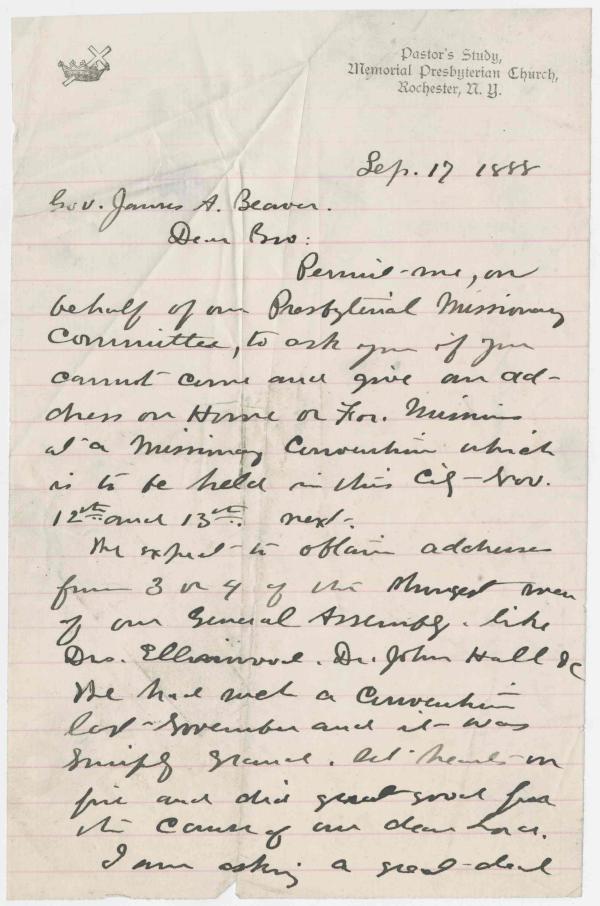 Pastor's Study,
Memorial Presbyterian Church,
Rochester, N. Y.
Sep. 17 1888
Gov. James A. Beaver.
Dear Bro:
Permit me, on
behalf of our Presbyterial Missionary
Committee, to ask you if you
cannot come and give an ad-
dress on Home or For. Missions
at a Missionary Convention which
is to be held in this City Nov.
12th and 13th next.
We expect to obtain addresses
from 3 or 4 of the strongest men
of our General Assembly. like
Drs. Ellinwood. Dr. John Hall &c
We had such a Convention
last November and it was
simply grand. Set hearts on
fire and did great good for
the Cause of our dear Lord.
I am asking a great deal